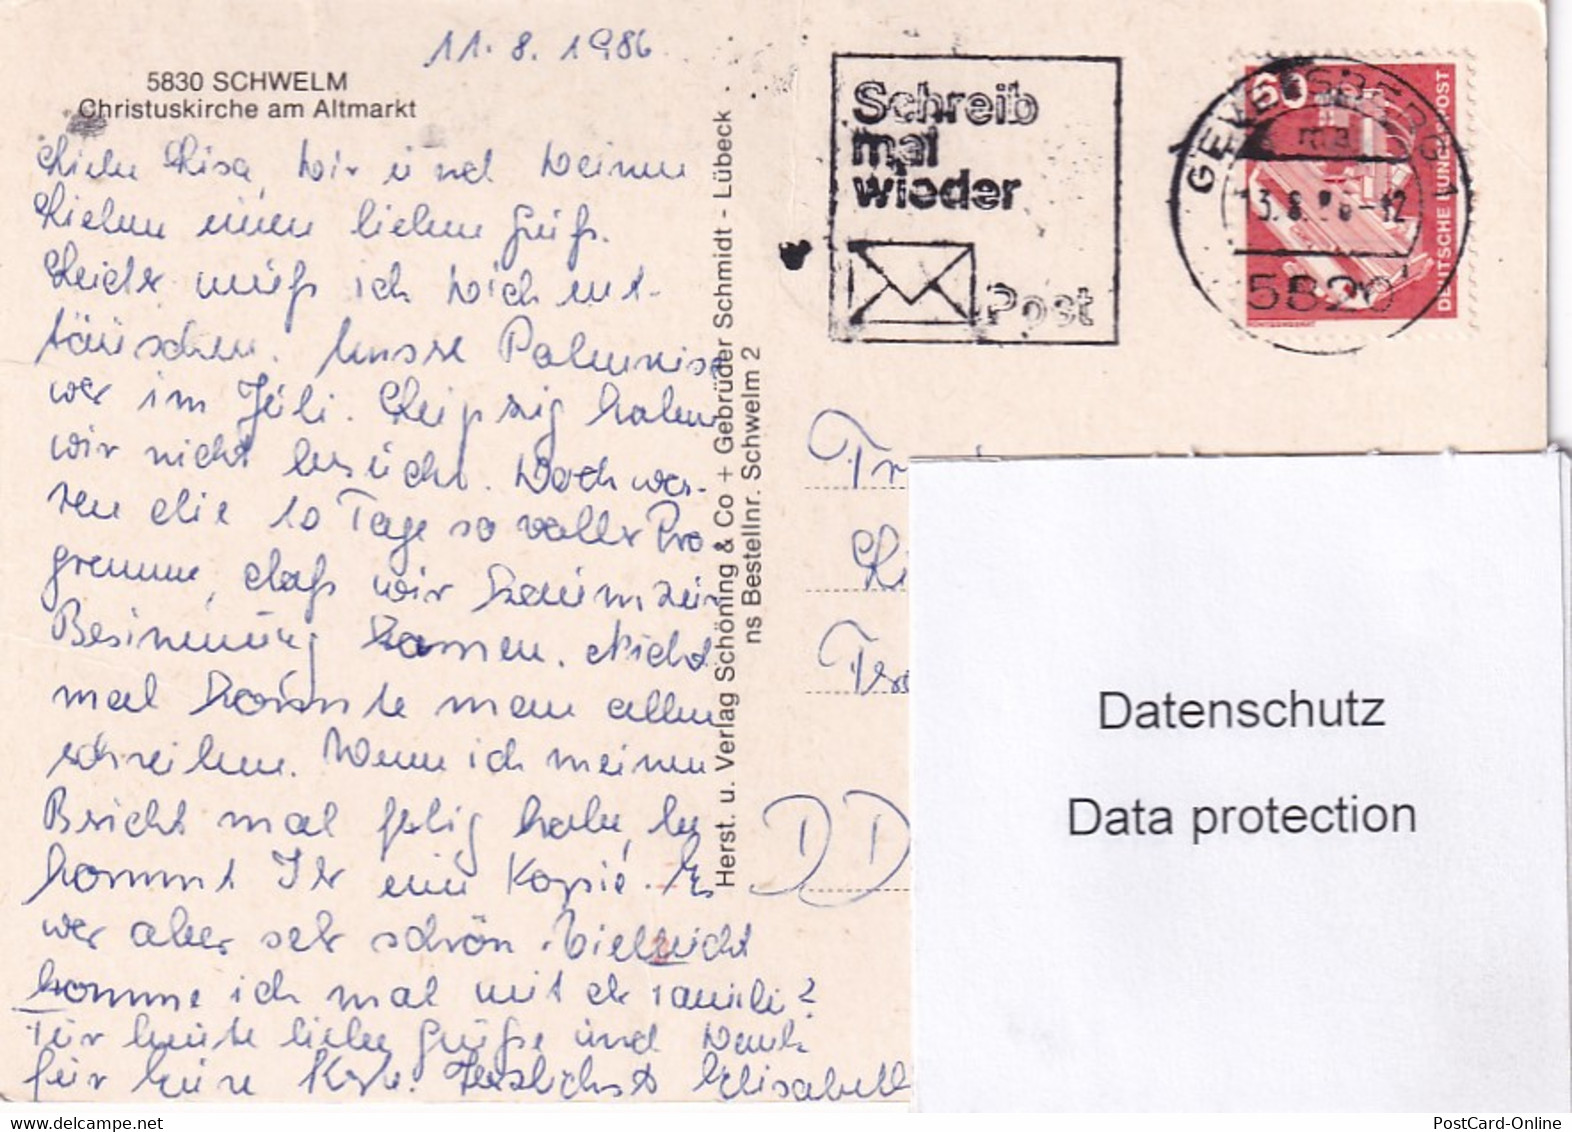 11. 8. 1986
5830 SCHWELM
Christuskirche am Altmarkt
Liebe Lisa, Dir und Deinen
Lieben einen lieben Gruß.
Leider muß ich Dich ent-
täuschen. Unsere Polenreise
war im Juli. Leipzig haben
wir nicht besucht. Doch wa-
ren die 10 Tage so voller Pro-
gramme, daß wir kaum zur
Besinnung kamen. Nicht
mal konnte man allen
schreiben. Wenn ich meinen
Bericht mal fertig habe, be
kommt Ihr eine Kopie. Es
war aber sehr schön. Vielleicht
komme ich mal mit d. Familie?
Für heute liebe Grüße und Dank
für Eure Karte. Herzlichst Elisabeth
Herst. u. Verlag Schöning & Co + Gebrüder Schmidt - Lübeck
ns Bestellnr. Schwelm 2
Schreib
mal
wieder
Post
GEVELSBERG 1
13.8.86-12
5820
60
DEUTSCHE BUNDESPOST
RÖNTGENGERÄT
DD
Datenschutz
Data protection
PostCard-Online